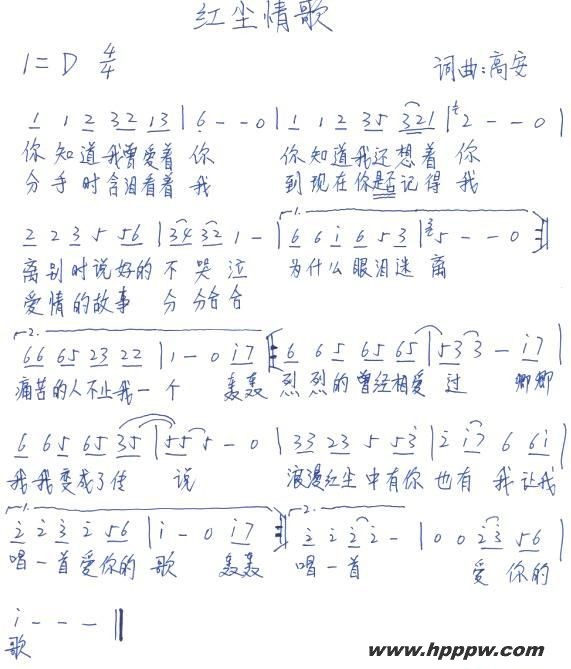 红尘情歌
1=D 4/4 词曲:高安
1 1 2 32 13 | 6 - - 0 | 1 1 2 35 321 | 2 - - 0 |
你知道我曾爱着 你 你知道我还想着 你
分手时含泪看着 我 到现在你是否记得 我
2 2 3 5 56 | 34 32 1 - | 1. 6 6 i 6 5 3 | 5 - - 0 :||
离别时说好的 不 哭 泣 为什么眼泪迷 离
爱情的故事 分 分合 合
2. 66 65 23 22 | 1 - 0 i7 ||: 6 65 65 65 | 53 3 - i7 |
痛苦的人不止我一 个 轰轰 烈 烈的曾经相爱 过 卿卿
6 65 65 35 | 55 5 - 0 | 33 23 5 53 | 2 i7 6 6i |
我 我变成了传 说 浪漫红尘 中有你 也有 我 让我
1. 2 2 3 2 56 | i - 0 i7 :|| 2. 2 2 2 2 - | 0 0 23 56 |
唱一首爱你的 歌 轰轰 唱一首 爱 你的
i - - - ||
歌
www.hpppw.com